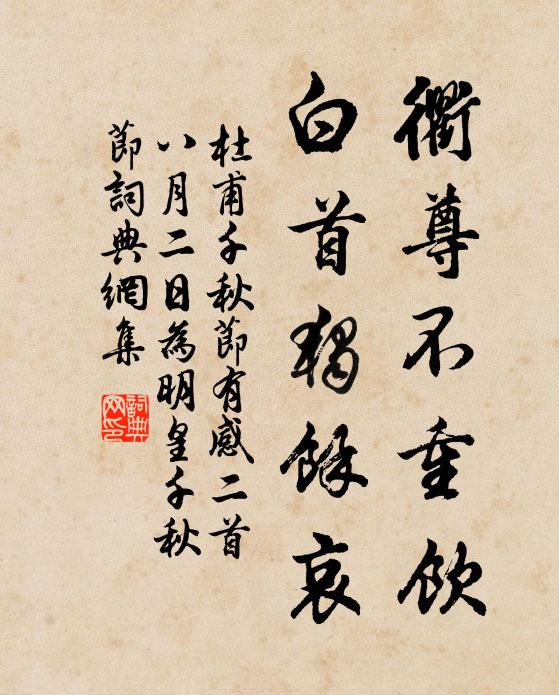 衢尊不重飲
白首獨餘哀
杜甫千秋節有感二首
八月二日為明皇千秋
節詞典網集
詞典
网印